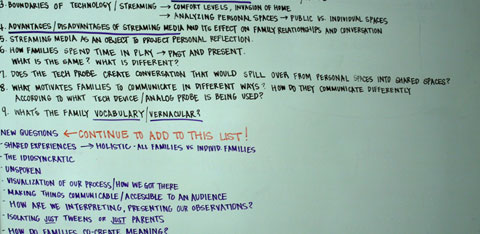 3. BOUNDARIES OF TECHNOLOGY/STREAMING → COMFORT LEVELS, INVASION OF HOME
→ ANALYZING PERSONAL SPACES → PUBLIC VS. INDIVIDUAL SPACES
4. ADVANTAGES/DISADVANTAGES OF STREAMING MEDIA AND ITS EFFECT ON FAMILY RELATIONSHIPS AND CONVERSATION
5. STREAMING MEDIA AS AN OBJECT TO PROJECT PERSONAL REFLECTION.
6. HOW FAMILIES SPEND TIME IN PLAY → PAST AND PRESENT.
WHAT IS THE GAME? WHAT IS DIFFERENT?
7. DOES THE TECH PROBE CREATE CONVERSATION THAT WOULD SPILL OVER FROM PERSONAL SPACES INTO SHARED SPACES?
8. WHAT MOTIVATES FAMILIES TO COMMUNICATE IN DIFFERENT WAYS? HOW DO THEY COMMUNICATE DIFFERENTLY
ACCORDING TO WHAT TECH DEVICE/ANALOG PROBE IS BEING USED?
9. WHAT'S THE FAMILY VOCABULARY/VERNACULAR?
NEW QUESTIONS ← CONTINUE TO ADD TO THIS LIST!
- SHARED EXPERIENCES → HOLISTIC - ALL FAMILIES VS INDIVID. FAMILIES
- THE IDIOSYNCRATIC
- UNSPOKEN
- VISUALIZATION OF OUR PROCESS/HOW WE GOT THERE
- MAKING THINGS COMMUNICABLE/ACCESSIBLE TO AN AUDIENCE
- HOW ARE WE INTERPRETING, PRESENTING OUR OBSERVATIONS?
- ISOLATING JUST TWEENS OR JUST PARENTS
- HOW DO FAMILIES CO-CREATE MEANING?